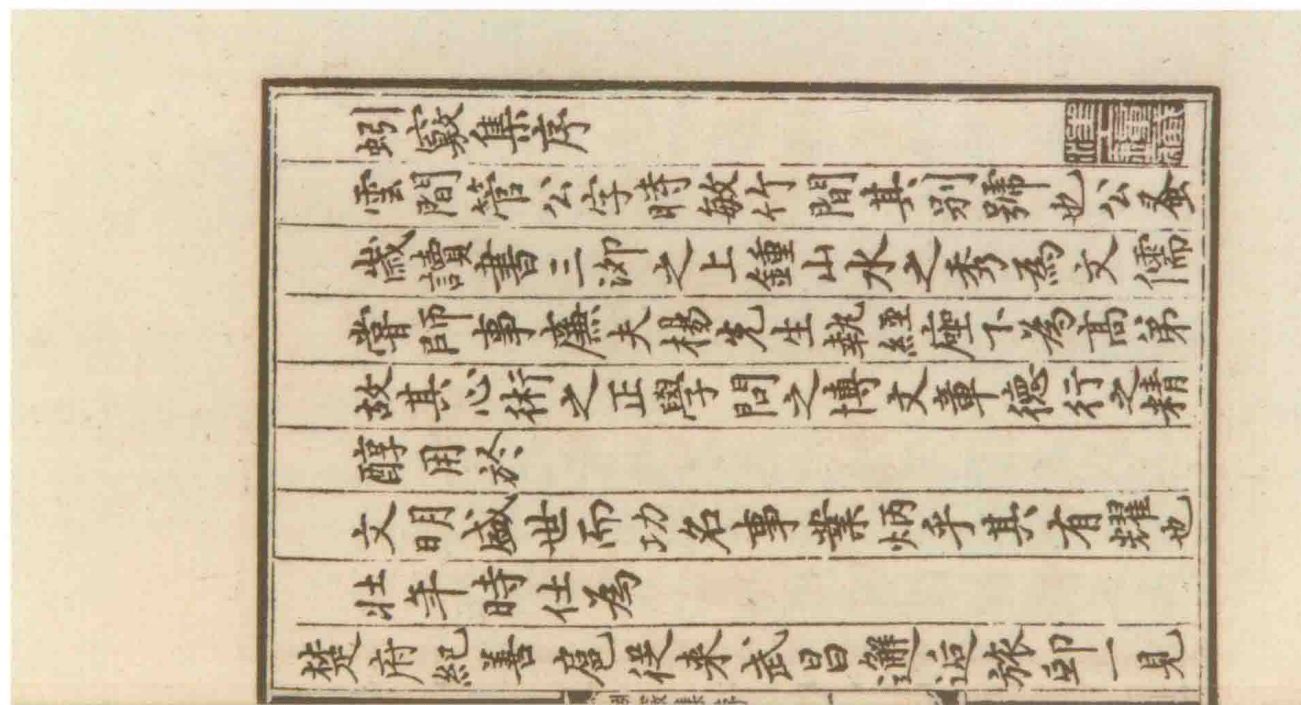 蚓竅集序
雲間管公字時敏竹間其別號也公蚤
歲讀書三泖之上鍾山水之秀爲文儒
嘗師事廉夫楊先生執經座下為高弟
故其心術之正學問之博文章德行之精
醇用於
文明盛世而功名事業炳乎其有耀也
壯年時仕為
楚府紀善扈從来武昌邂逅旅邸一見